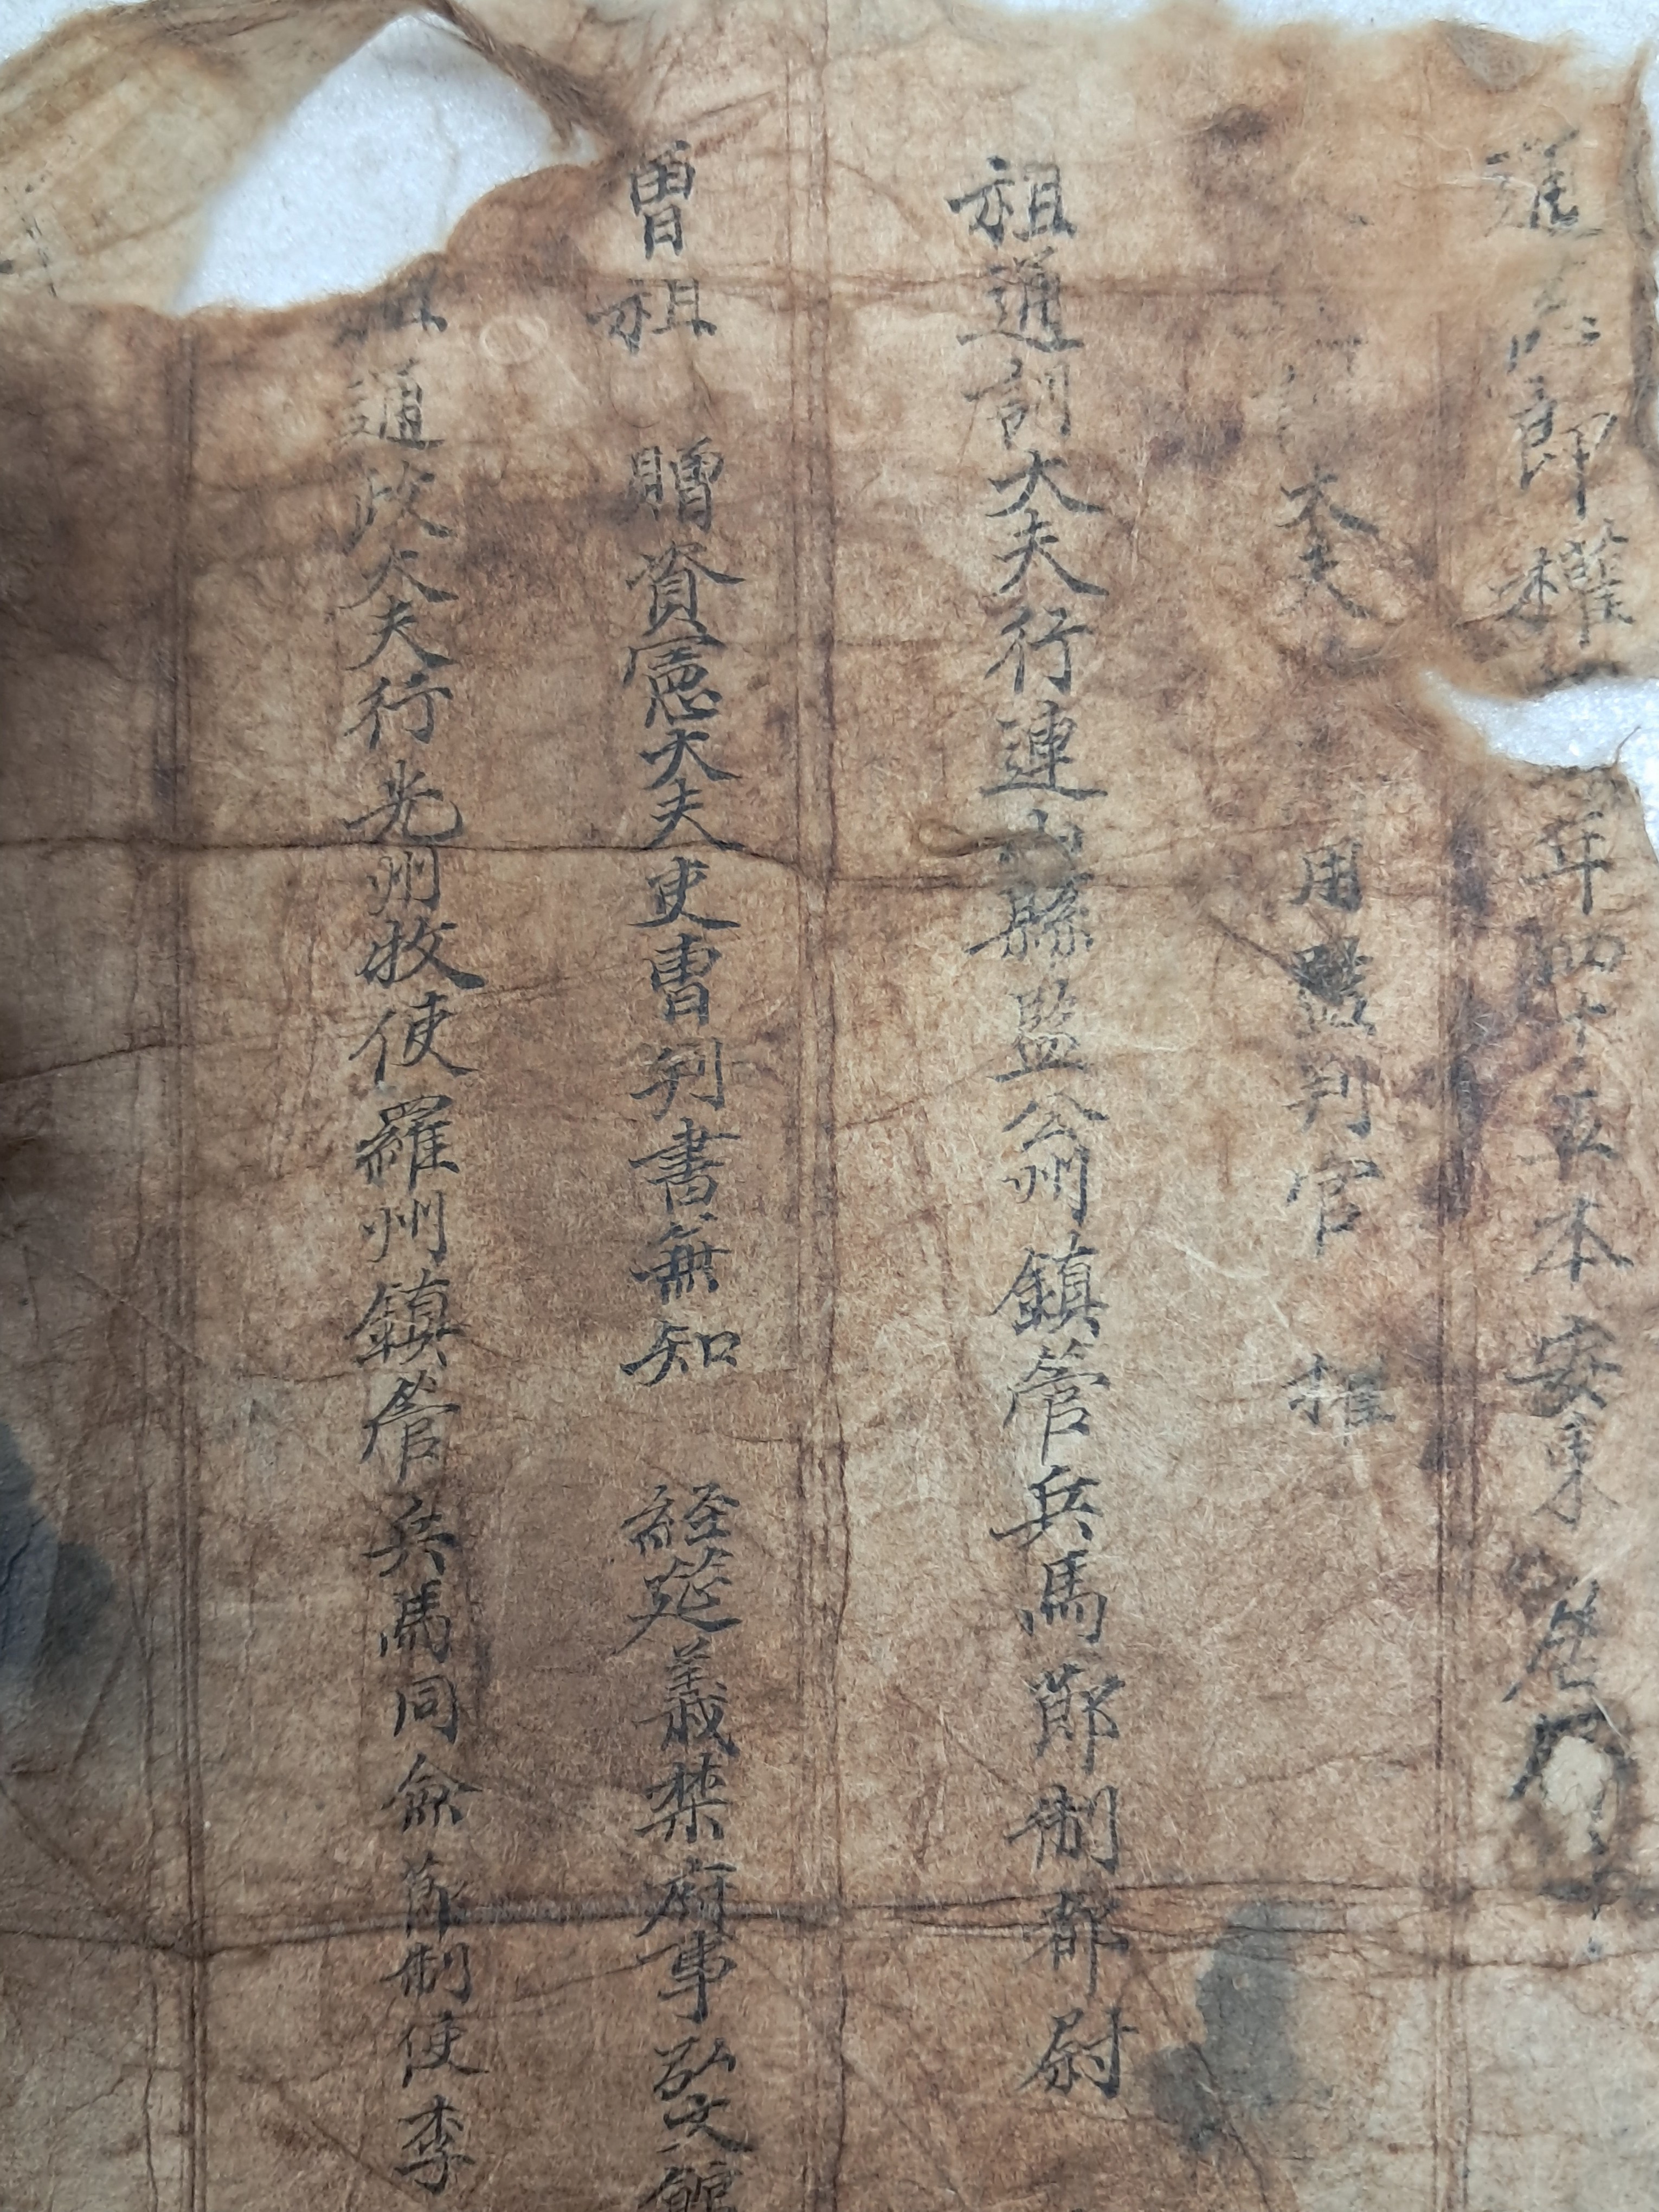 通郎權年四十五本安東居
大夫用監判官
祖通訓大夫行連山縣監公州鎭管兵馬節制都尉
曾祖 贈資憲大夫吏曹判書兼知 経筵義禁府事弘文館
祖通政大夫行光州牧使羅州鎭管兵馬同僉節制使李